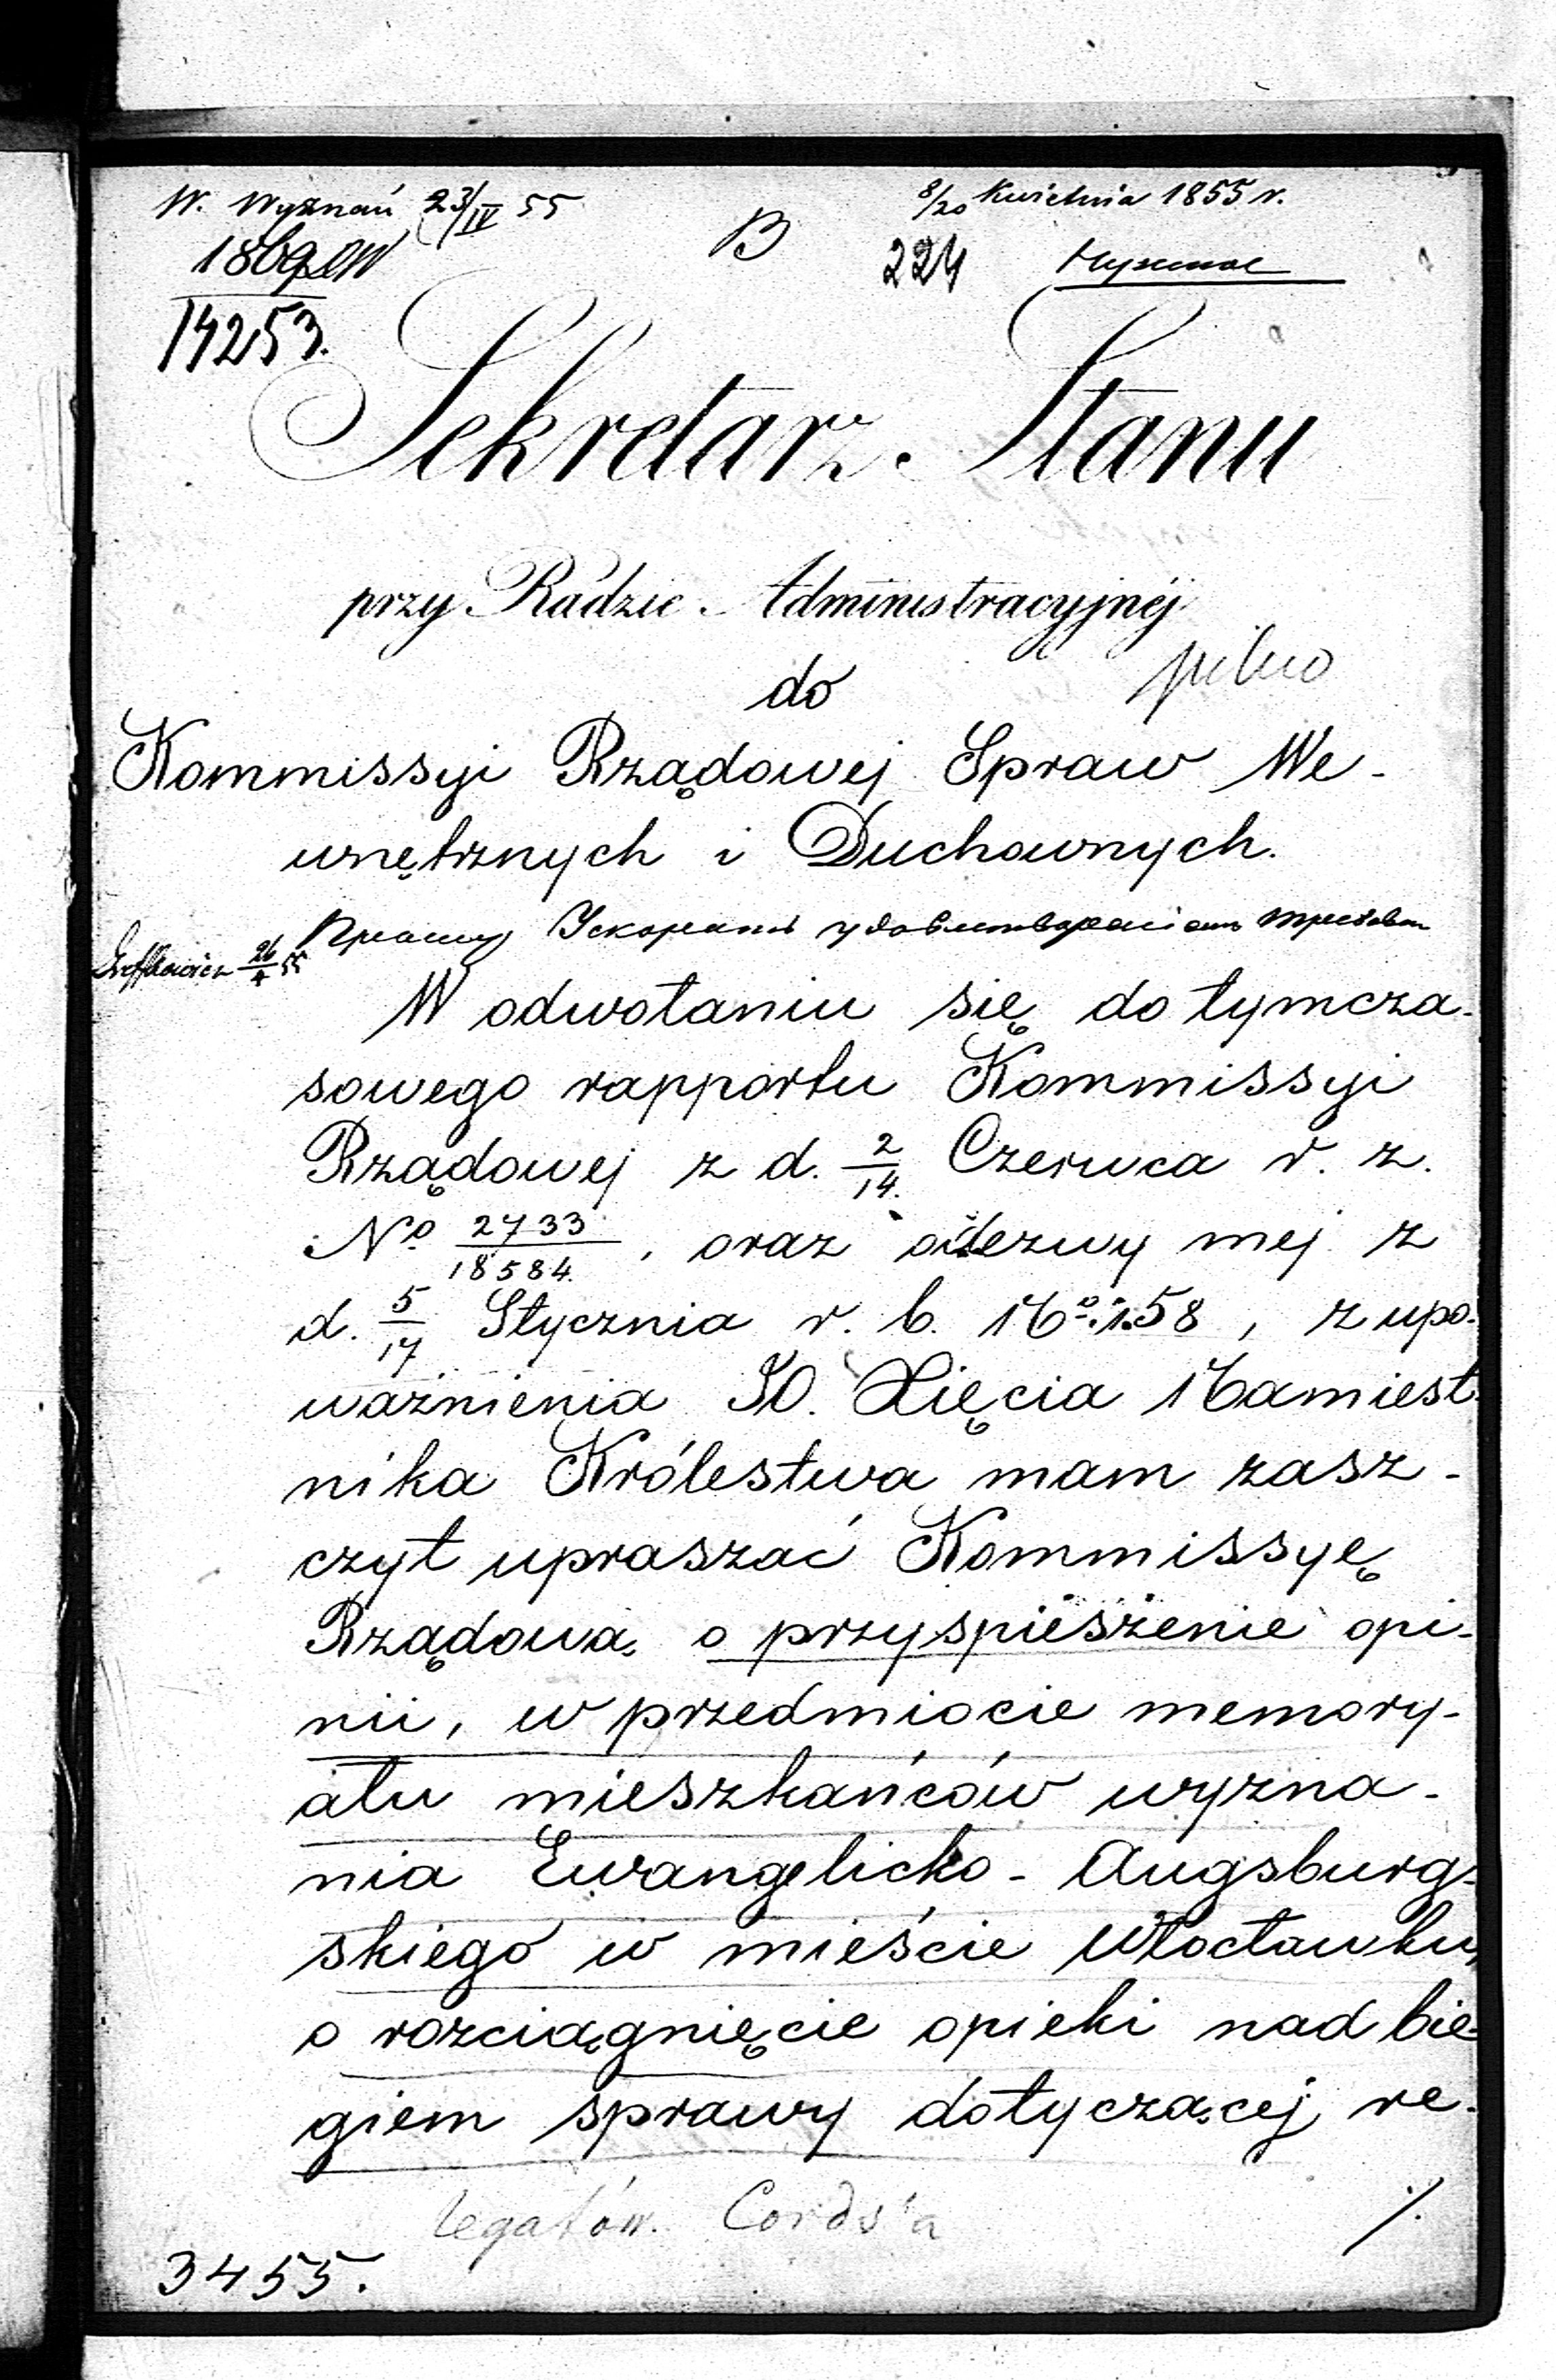 W. Wyznań 23/IV 55
8/20 Kwietnia 1855 r.
B
224
14253.
Sekretarz Stanu
przy Radzie Administracyjnéj
pilno
do
Kommissyi Rządowej Spraw We-
wnętrznych i Duchownych.
Прошу
26/4 55
W odwołaniu się do tymcza-
sowego rapportu Kommissyi
Rządowej z d. 2/14. Czerwca r. z.
No. 2733/18584. , oraz odezwy mej z
d. 5/17 Stycznia r. b. No. 158 , z upo-
ważnienia JO. Xięcia Namiest-
nika Królestwa mam zasz-
czyt upraszać Kommissyę
Rządową o przyspieszenie opi-
nii, w przedmiocie memory-
ału mieszkańców wyzna-
nia Ewangelicko-Augsburg-
skiego w mieście Włocławku,
o rozciągnięcie opieki nad bie-
giem sprawy dotyczącej re-
legatów. Cords'a
./.
3455.